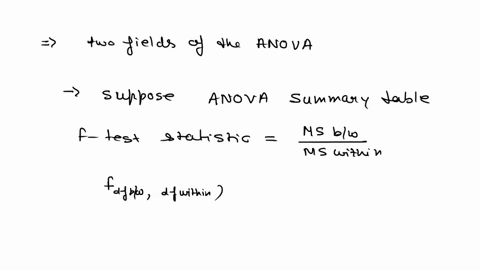 ⇒ two fields of the ANOVA
→ Suppose ANOVA Summary table
f-test statistic = MS b/w / MS within
f df b/w, df within)